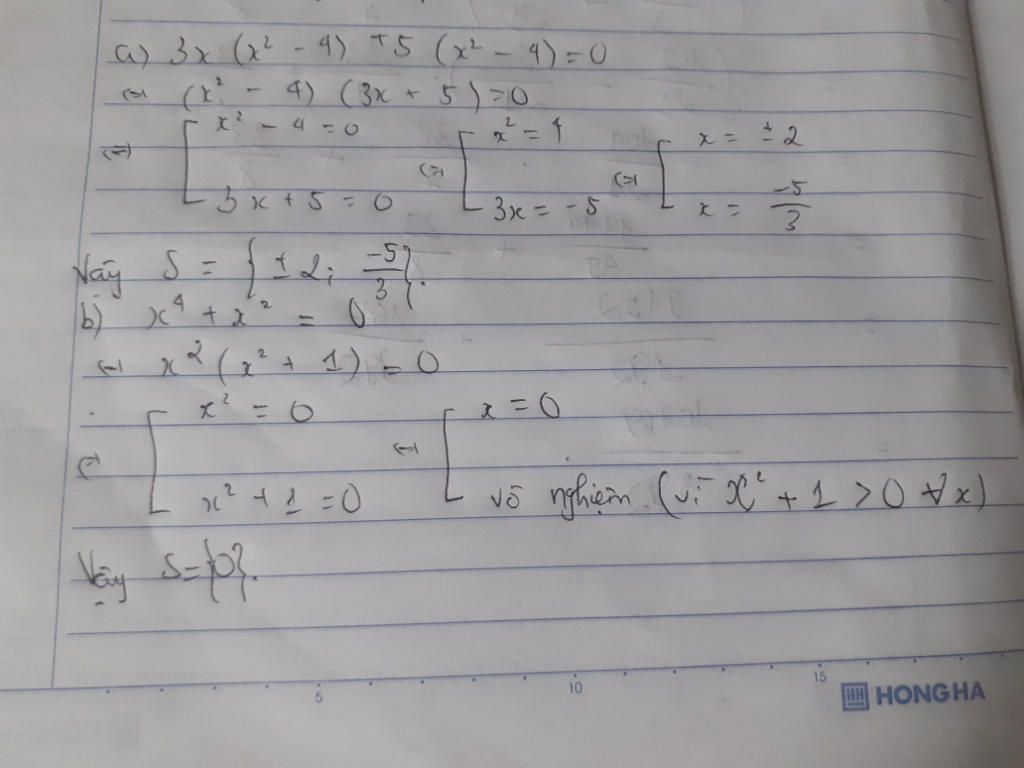 a) 3x (x² - 4) + 5 (x² - 4) = 0
⇔ (x² - 4) (3x + 5) = 0
⇔ [ x² - 4 = 0 ⇔ [ x² = 4 ⇔ [ x = ± 2
3x + 5 = 0 3x = -5 x = -5/3
Vậy S = { ± 2; -5/3 }.
b) x⁴ + x² = 0
⇔ x² (x² + 1) = 0
⇔ [ x² = 0 ⇔ [ x = 0
x² + 1 = 0 vô nghiệm (vì x² + 1 > 0 ∀x)
Vậy S = {0}.
5 10 15
HH HONG HA